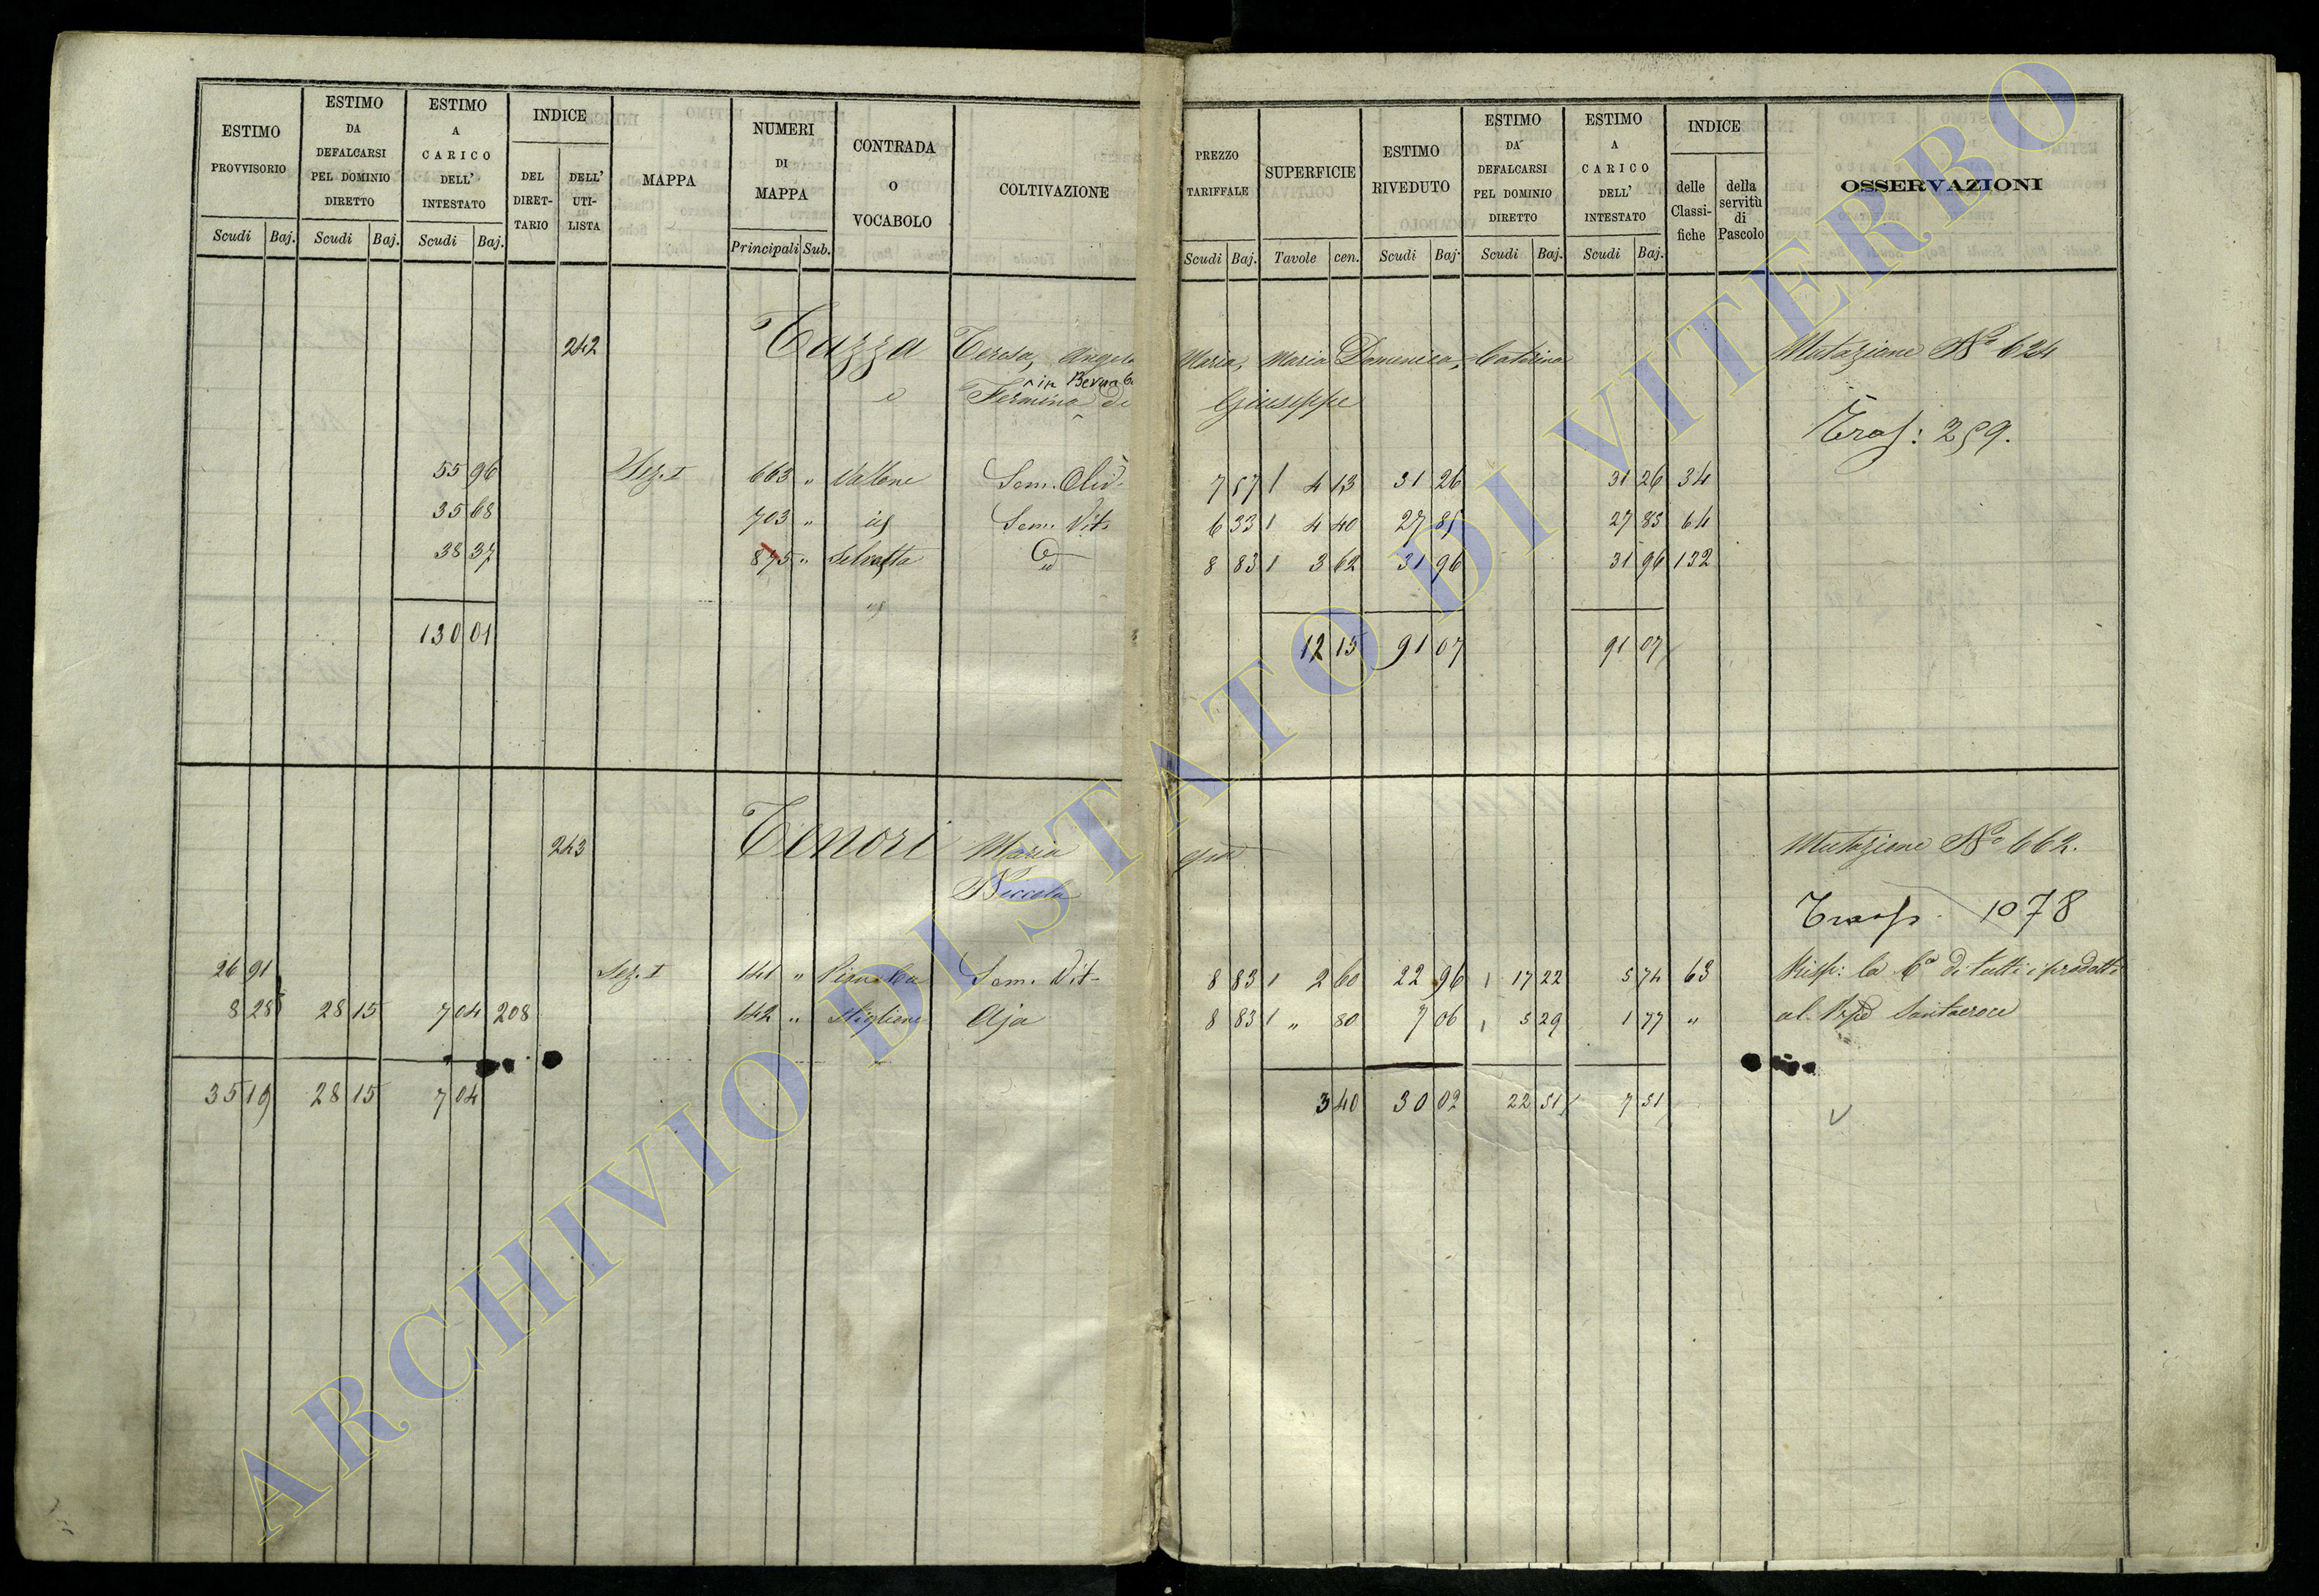 ESTIMO PROVVISORIO
ESTIMO DA DEFALCARSI PEL DOMINIO DIRETTO
ESTIMO A CARICO DELL' INTESTATO
INDICE
DEL DIRET-TARIO
DELL' UTI-LISTA
MAPPA
NUMERI DI MAPPA
CONTRADA O VOCABOLO
COLTIVAZIONE
Scudi Baj. Scudi Baj. Scudi Baj. Principali Sub.
PREZZO TARIFFALE
SUPERFICIE
ESTIMO RIVEDUTO
ESTIMO DA DEFALCARSI PEL DOMINIO DIRETTO
ESTIMO A CARICO DELL' INTESTATO
INDICE
delle Classi-fiche
della servitù di Pascolo
OSSERVAZIONI
Scudi Baj. Tavole cen. Scudi Baj. Scudi Baj. Scudi Baj.
242 Tazza Teresa, Angela Maria, Maria Domenica, Catarina Mutazione N° 624
in
e Fermina di Giuseppe
Trasf: 259.
55 96 Sez. I 663 " Vallone Sem. Oliv. 7 57 4 13 31 26 31 26 34
35 68 703 " id Sem. Vit. 6 33 4 40 27 85 27 85 64
38 37 875 " Selvotta id 8 83 3 62 31 96 31 96 132
130 01 12 15 91 07 91 07
243 Tenori Maria Mutazione N° 662.
Niccola
Trasf. 1078
26 91 Sez. I 141 " Sem. Vit. 8 83 2 60 22 96 17 22 5 74 63 Risp: la 6a di tutti i prodotti
8 28 28 15 7 04 208 142 " Stiglione Aja 8 83 " 80 7 06 5 29 1 77 " al Santacroce
35 19 28 15 7 04 3 40 30 02 22 51 7 51
ARCHIVIO DI STATO DI VITERBO